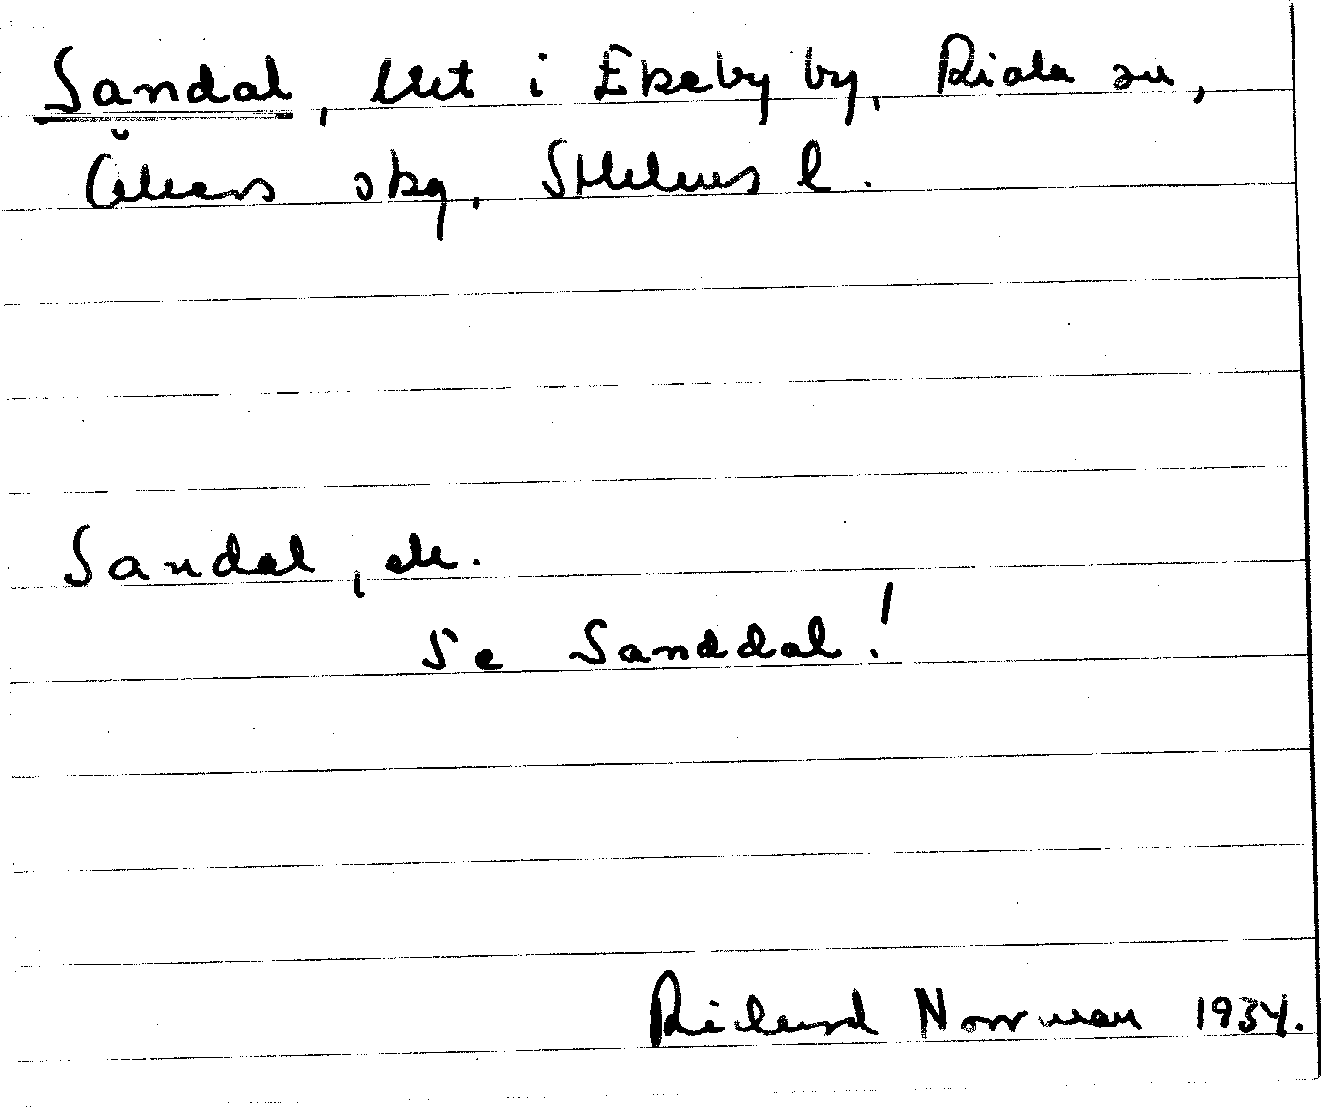 Sandal, lht i Ekeby by, Riala sn,
Åkers skg, Sthlms l.
Sandal,
Se Sanddal!
Richard Norrman 1934.